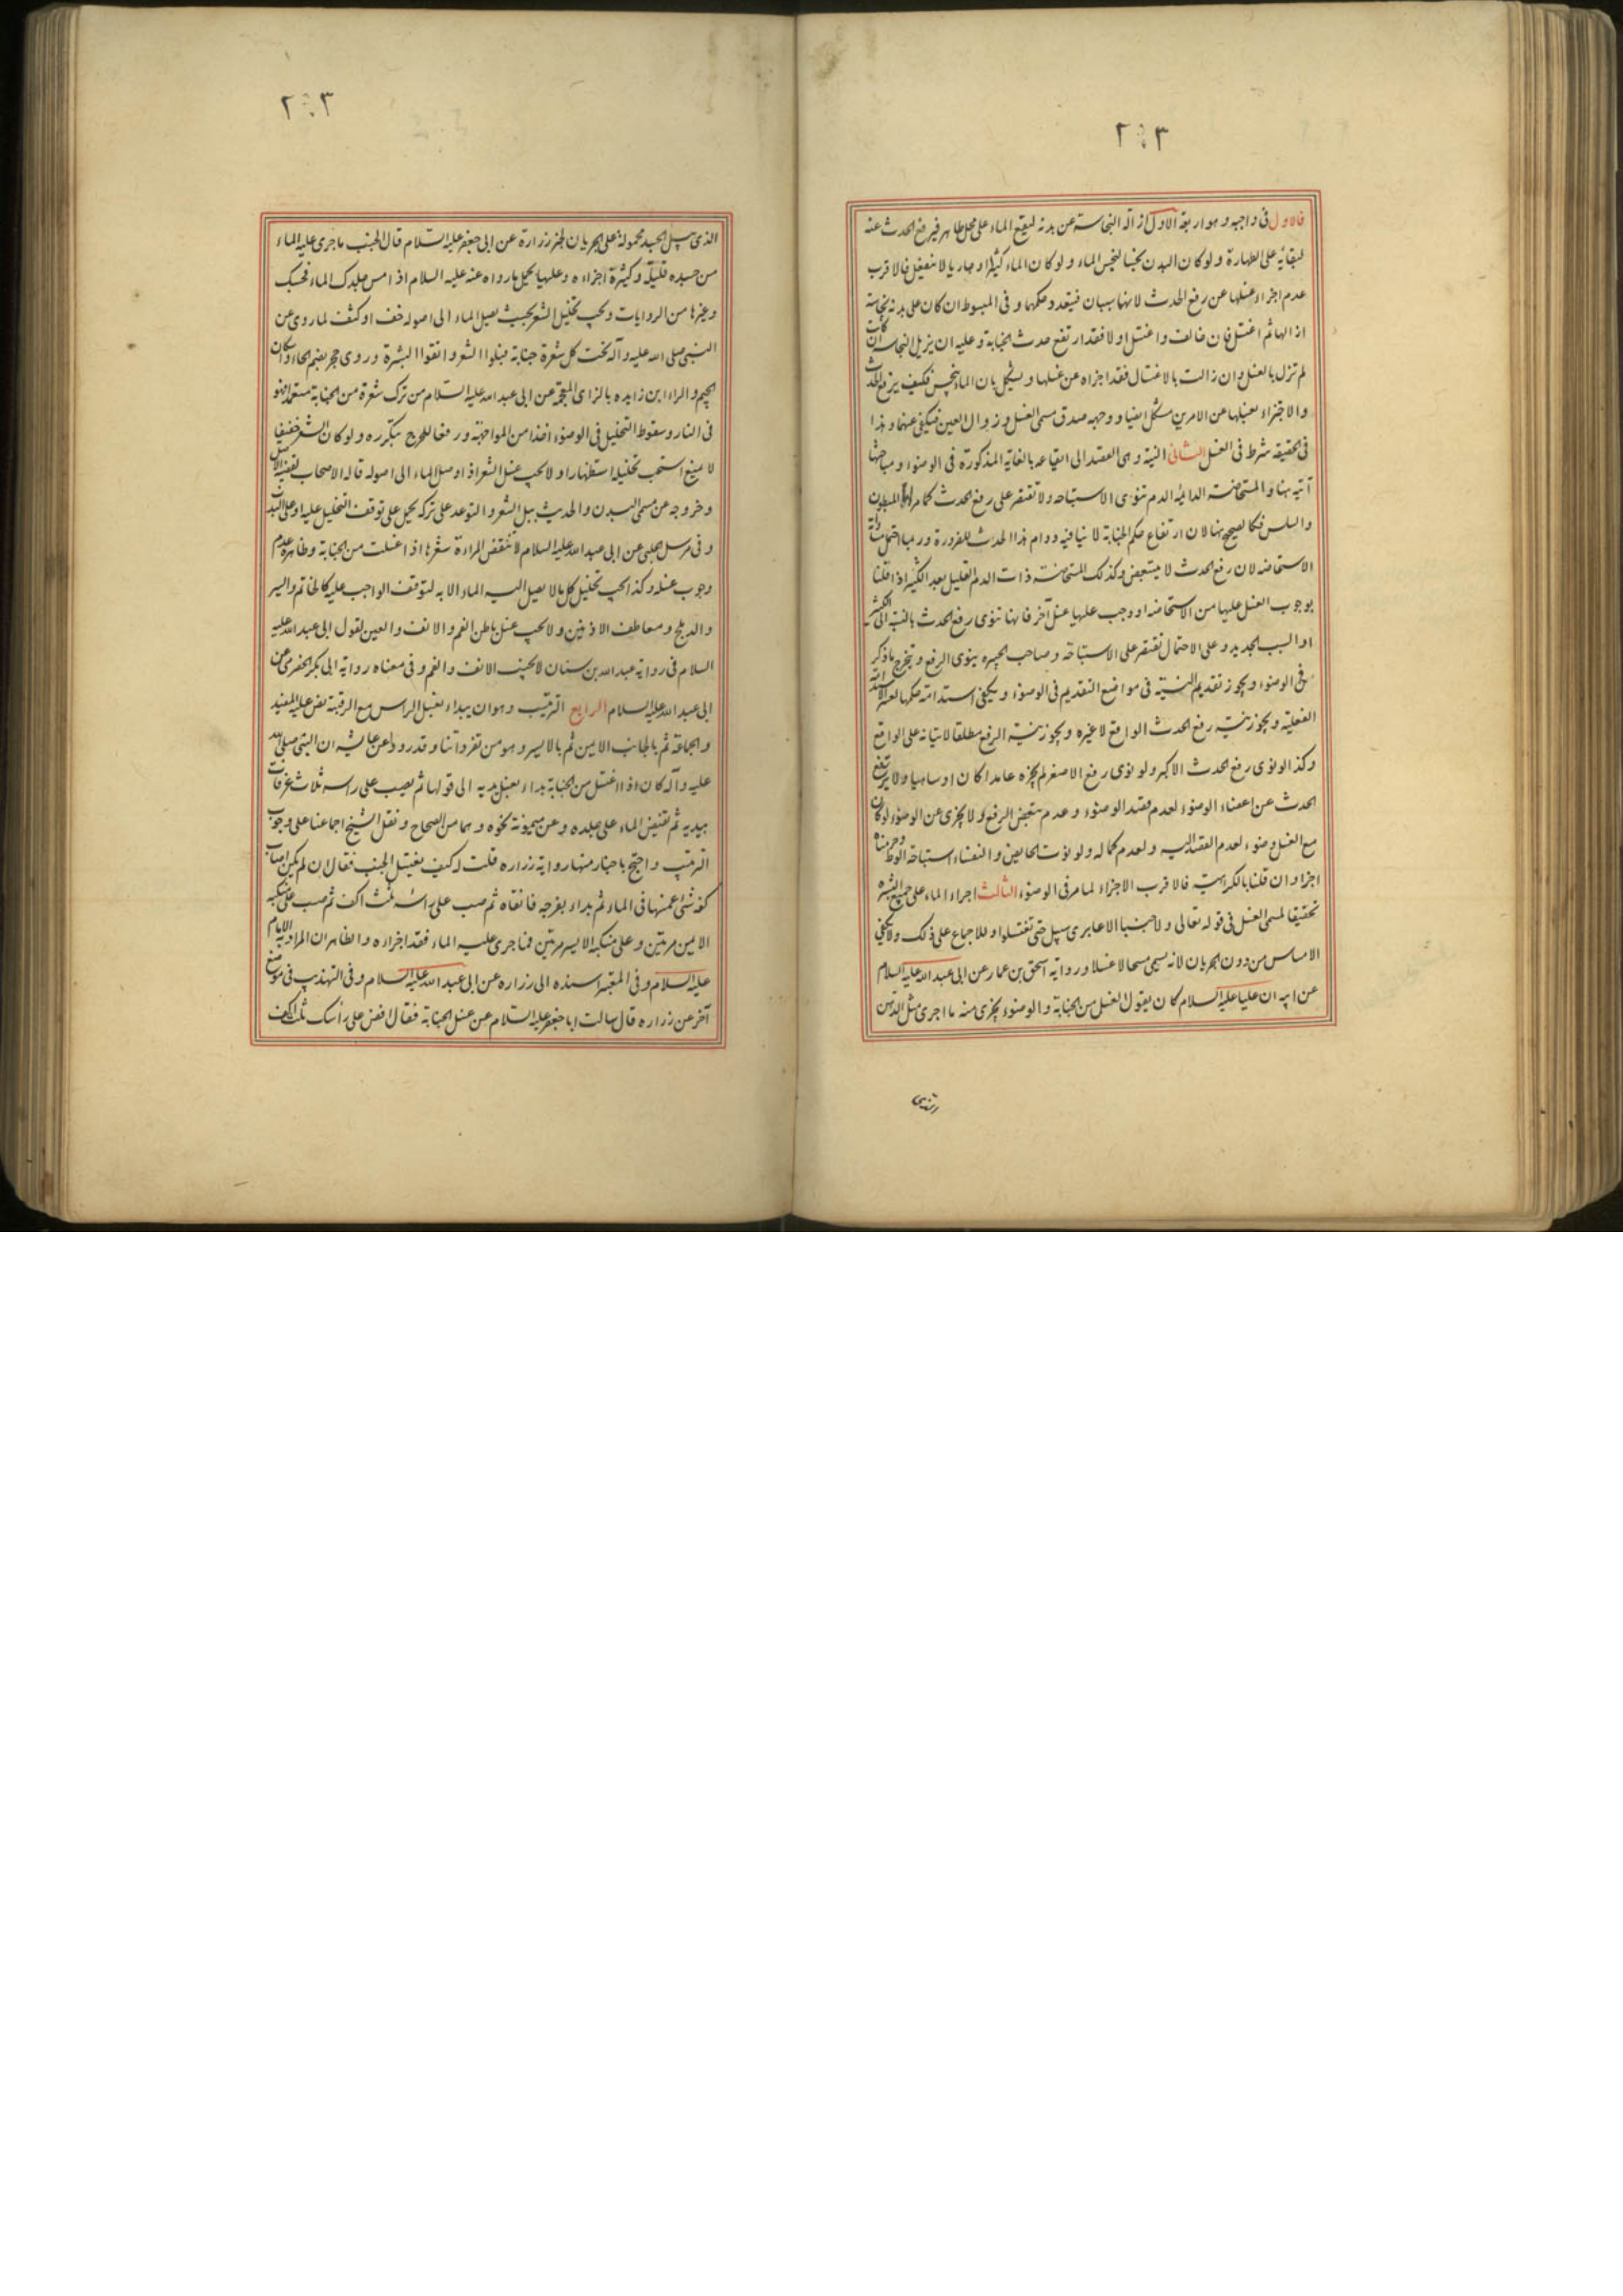 ٢٠٣
فالاول فى واجبه وهو اربعة الاول ازالة النجاسة عن بدنه ليقع الماء على محل طاهر فيرفع الحدث عنه
لبقائه على الطهارة ولو كان البدن نجسا لنجس الماء ولو كان الماء كثيرا او جاريا لا ينفعل فالاقرب
عدم اجزاء غسلها عن رفع الحدث لانهما سببان فيتعدد حكمهما وفى المبسوط ان كان على بدنه نجاسة
ازالها ثم اغتسل فان خالف واغتسل اولا فقد ارتفع حدث الجنابة وعليه ان يزيل النجاسة ان كانت
لم تزل بالغسل وان زالت بالاغتسال فقد اجزاه عن غسلها ويشكل بان الماء ينجس فكيف يرفع الحدث
والاجتزاء بغسلها عن الامرين مشكل ايضا ووجهه صدق مسمى الغسل وزوال العين فيكفى عنهما وهذا
فى الحقيقة شرط فى الغسل الثانى النية وهى القصد الى ايقاعه بالغاية المذكورة فى الوضوء ومباحثها
آتية هنا والمستحاضة الدائمة الدم تنوى الاستباحة ولا تقتصر على رفع الحدث كما مر اما المبطون
والسلس فكالصحيح هنا لان ارتفاع حكم الجنابة لا ينافيه دوام هذا الحدث للضرورة وربما احتمل
الاستحاضة لان رفع الحدث لا يتبعض وكذلك المستحاضة ذات الدم القليل بعد الكثير اذا قلنا
بوجوب الغسل عليها من الاستحاضة او وجب عليها غسل آخر فانها تنوى رفع الحدث بالنسبة الى الكثير
او السبب الجديد وعلى الاحتمال تقتصر على الاستباحة وصاحب الجبيرة ينوى الرفع ويخرج ما ذكر
فى الوضوء ويجوز تقديم النية فى مواضع التقديم فى الوضوء ويكفى استدامة حكمها لعسر الاستدامة
الفعلية ويجوز نية رفع الحدث الواقع لا غيره ويجوز نية الرفع مطلقا لاتيانه على الواقع
وكذا لو نوى رفع الحدث الاكبر ولو نوى رفع الاصغر لم يجزه عامدا كان او ساهيا ولا يرتفع
الحدث عن اعضاء الوضوء لعدم قصد الوضوء وعدم تبعض الرفع ولا يجزى عن الوضوء لو كان
مع الغسل وضوء لعدم القصد اليه ولعدم كماله ولو نوت الحائض والنفساء استباحة الوطء وحرمناه
اجزا وان قلنا بالكراهية فالاقرب الاجزاء لما مر فى الوضوء الثالث اجراء الماء على جميع البشرة
تحقيقا لمسمى الغسل فى قوله تعالى ولا جنبا الا عابرى سبيل حتى تغتسلوا وللاجماع على ذلك ولا يكفى
الامساس من دون الجريان لانه يسمى مسحا لا غسلا ورواية اسحق بن عمار عن ابى عبد الله عليه السلام
عن ابيه ان عليا عليه السلام كان يقول الغسل من الجنابة والوضوء يجزى منه ما اجرى مثل الدهن
الذى
٢٠٣
الذى يبل الجسد محمولة على الجريان لخبر زرارة عن ابى جعفر عليه السلام قال الجنب ما جرى عليه الماء
من جسده قليله وكثيرة اجزاءه وعليها يحمل ما رواه عنه عليه السلام اذا مس جلدك الماء فحسبك
وغيرها من الروايات ويجب تخليل الشعر بحيث يصل الماء الى اصوله خف او كثف لما روى عن
النبى صلى الله عليه وآله تحت كل شعرة جنابة فبلوا الشعر وانقوا البشرة وروى حجر بضم الحاء واسكان
الجيم والراء ابن زايده بالزاى المعجمة عن ابى عبد الله عليه السلام من ترك شعرة من الجنابة متعمدا فهو
فى النار وسقوط التخليل فى الوضوء اخذا من المواجهة ورفعا للحرج بتكرره ولو كان الشعر خفيفا
لا يمنع استحب تخليله استظهارا ولا يجب غسل الشعر اذا وصل الماء الى اصوله قاله الاصحاب لقضية الاصل
وخروجه عن مسمى البدن والحديث ببل الشعر والتوعد على تركه يحمل على توقف التخليل عليه او على الندب
وفى مرسل الحلبى عن ابى عبد الله عليه السلام لا تنقض المراة شعرها اذا اغسلت من الجنابة وظاهره عدم
وجوب غسله وكذا يجب تخليل كل ما لا يصل اليه الماء الا به لتوقف الواجب عليه كالخاتم والسير
والدملج ومعاطف الاذنين ولا يجب غسل باطن الفم والانف والعين لقول ابى عبد الله عليه
السلام فى رواية عبد الله بن سنان لا يجنب الانف والفم وفى معناه رواية ابى بكر الحضرمى عن
ابى عبد الله عليه السلام الرابع الترتيب وهو ان يبداء بغسل الراس مع الرقبة نص عليه المفيد
والجماعة ثم بالجانب الايمن ثم بالايسر وهو من تفرداتنا وقد روى عن عايشه ان النبى صلى الله
عليه وآله كان اذا اغتسل من الجنابة بداء بغسل يديه الى قولها ثم يصب على راسه ثلاث غرفات
بيديه ثم تفيض الماء على جلده وعن ميمونة نحوه وهما من الصحاح ونقل الشيخ اجماعنا على وجوب
الترتيب واحتج باخبار منها رواية زراره قلت له كيف يغتسل الجنب فقال ان لم يكن اصاب
كفه شئ غمسها فى الماء ثم بداء بفرجه فانقاه ثم صب على راسه ثلث اكف ثم صب على منكبه
الايمن مرتين وعلى منكبه الايسر مرتين فما جرى عليه الماء فقد اجزاءه والظاهر ان المراد به الامام
عليه السلام وفى المعتبر اسنده الى زراره عن ابى عبد الله عليه السلام وفى التهذيب فى موضع
آخر عن زراره قال سالت ابا جعفر عليه السلام عن غسل الجنابة فقال افض على راسك ثلث اكف